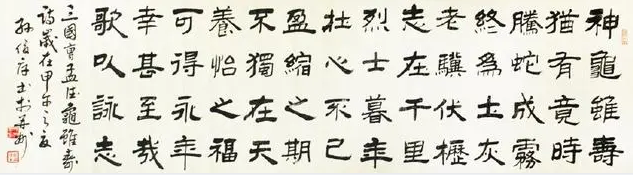 神龜雖壽
猶有竟時
騰蛇成霧
終為土灰
老驥伏櫪
志在千里
烈士暮年
壯心不已
盈縮之期
不獨在天
養怡之福
可得永年
幸甚至哉
歌以詠志
三國曹孟德龜雖壽
詩歲在甲午之夏
孫伯